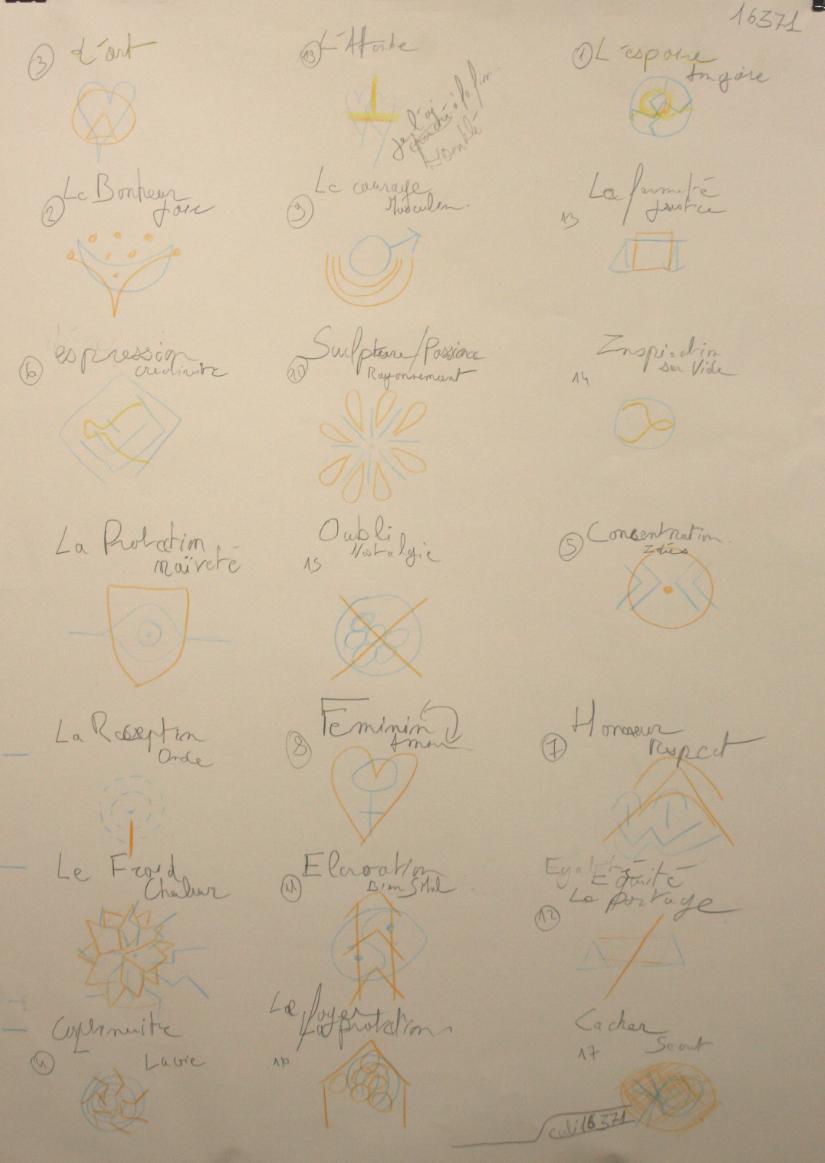 16371
③ L'art
⑬ L'Attente
① L'espoire
Imgoire
② Le Bonheur
Joie
⑨ Le courage
Musculem.
13 La fermeté
Justice
⑥ éspression
créativité
⑩ Sculpture/Passione
Rayonnement
14 Inspiration
sur Vide
La Protection
naïveté
15 Oubli
Nostalgie
⑤ Concentration
Idées
La Reseption
Onde
⑧ Feminin
Amour
⑦ Honneur
Respect
Le Froid
Chaleur
⑪ Elevation
⑫ Egalité
Equité
Le partage
④
La vie
16 Le foyer
La protations
17 Cacher
Secret
culi16371